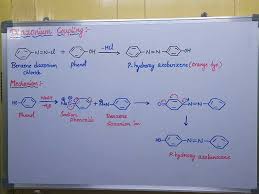 Diazonium Coupling:-
N=N-Cl + OH -HCl → N=N OH
Benzene diazonium chloride Phenol P-hydroxy azobenzene (orange dye)
Mechanism:-
HO + N=N → N=N
Phenol Sodium phenoxide Benzene diazonium ion
HO N=N
P-hydroxy azobenzene